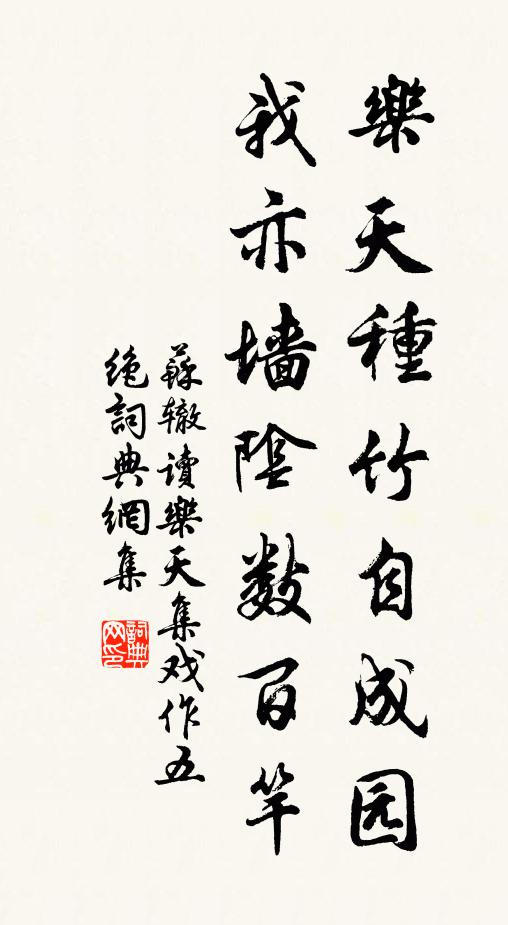 樂天種竹自成园
我亦墙陰数百竿
蘇辙讀樂天集戏作五
绝詞典網集
詞典网印